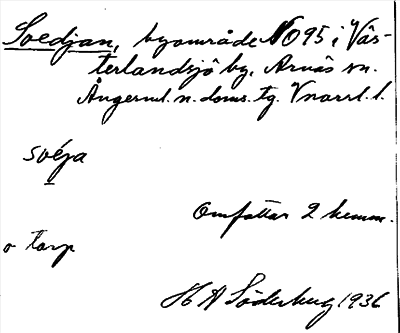 Svedjan, byområde NO95 i Väs-
terlandsjö by, Arnäs sn.
Ångerml. n. doms. tg. Vnorrl. l.
svéja
Omfattar 2 hemm.
o torp
H A Söderberg 1936